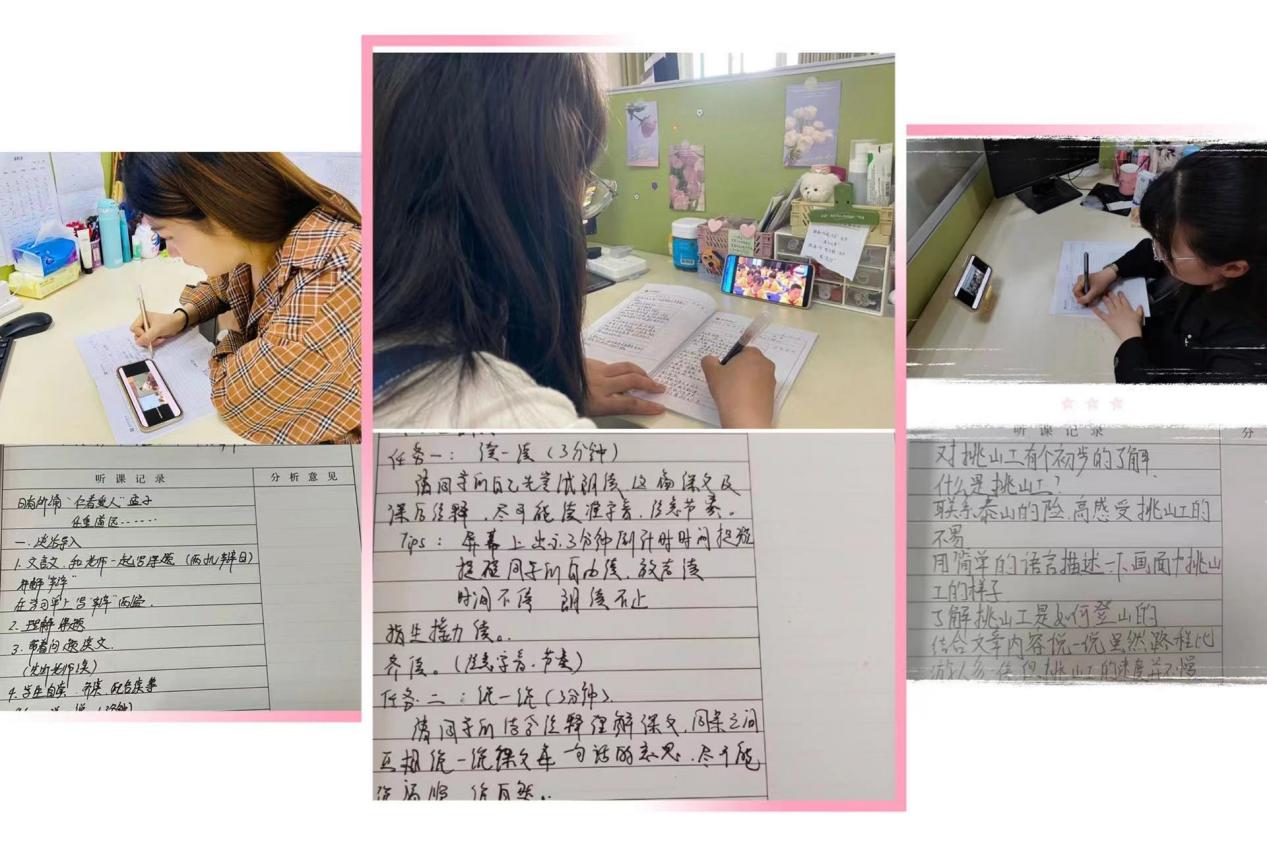 听课记录
分析意见
日有所诵“仁者爱人”孟子
任重道远……
一、谈话导入
1.文言文,和老师一起写课题(两小儿辩日)
在学习单上写“辩”两遍.
2.理解课题
3.带着问题读文.
4.学生自读、齐读、配合读等
任务一:读一读(3分钟)
请同学们自己先尝试朗读这篇课文及
课后注释,尽可能读准字音,注意节奏。
Tips:屏幕上出示3分钟倒计时时间提醒
提醒同学们自由读,放声读
时间不停 朗读不止
指生接力读。
齐读。(注意字音、节奏)
任务二:说一说(3分钟).
请同学们结合注释理解课文,同桌之间
互相说一说课文每一句话的意思.尽可能
说通顺 说自然..
听课记录
分
对挑山工有个初步的了解.
什么是挑山工?
联系泰山的险、高感受挑山工的
不易
用简单的语言描述一下画面中挑山
工的样子
了解挑山工是如何登山的
结合文章内容说一说虽然路程比
游人多一倍但挑山工的速度并不慢